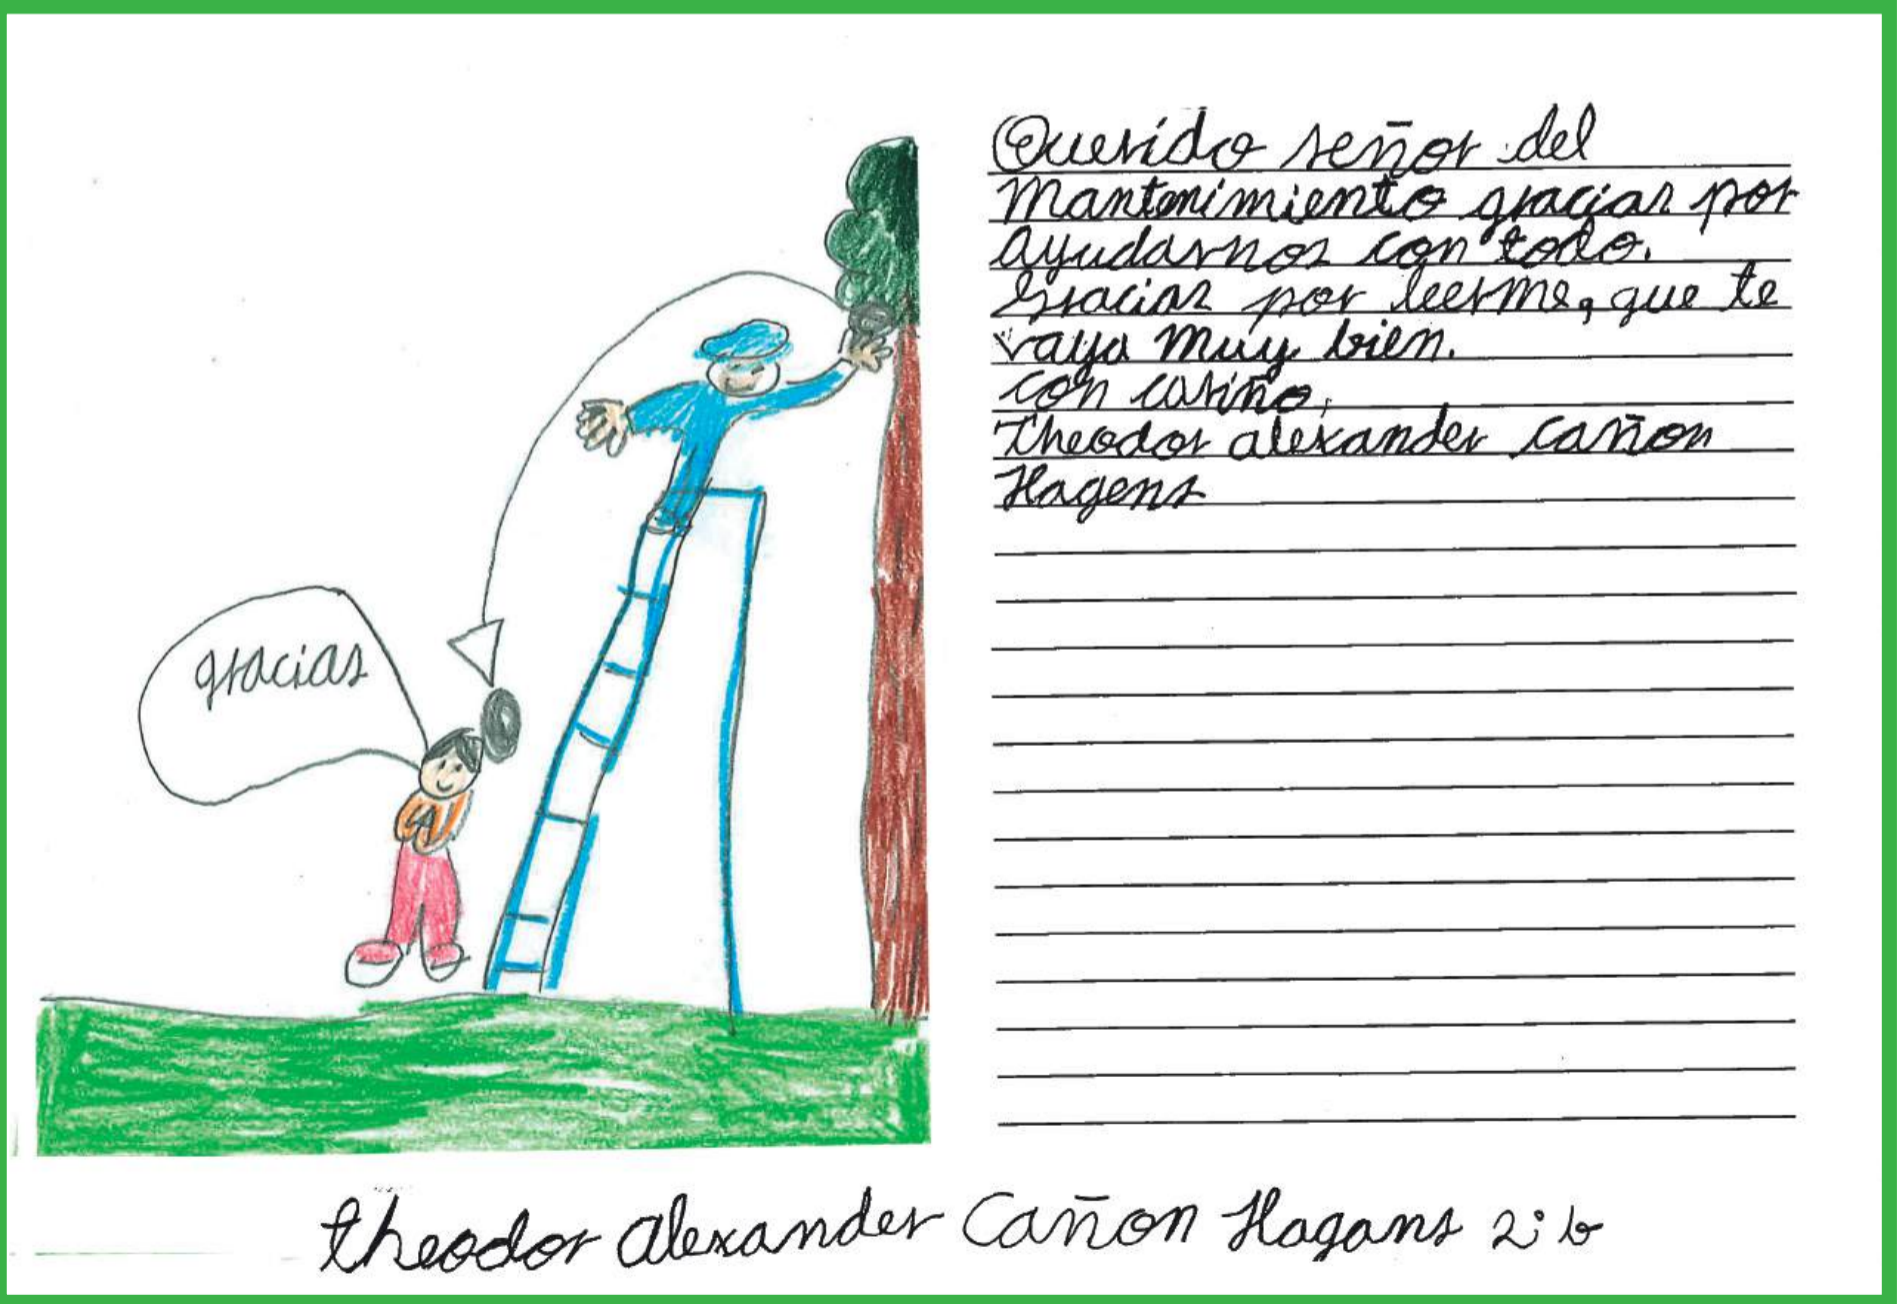 gracias
Querido señor del
Mantenimiento gracias por
ayudarnos con todo.
Gracias por leerme, que te
vaya muy bien.
con cariño,
Theodor alexander cañon
Hagens
theodor alexander Cañon Hagans 2:b